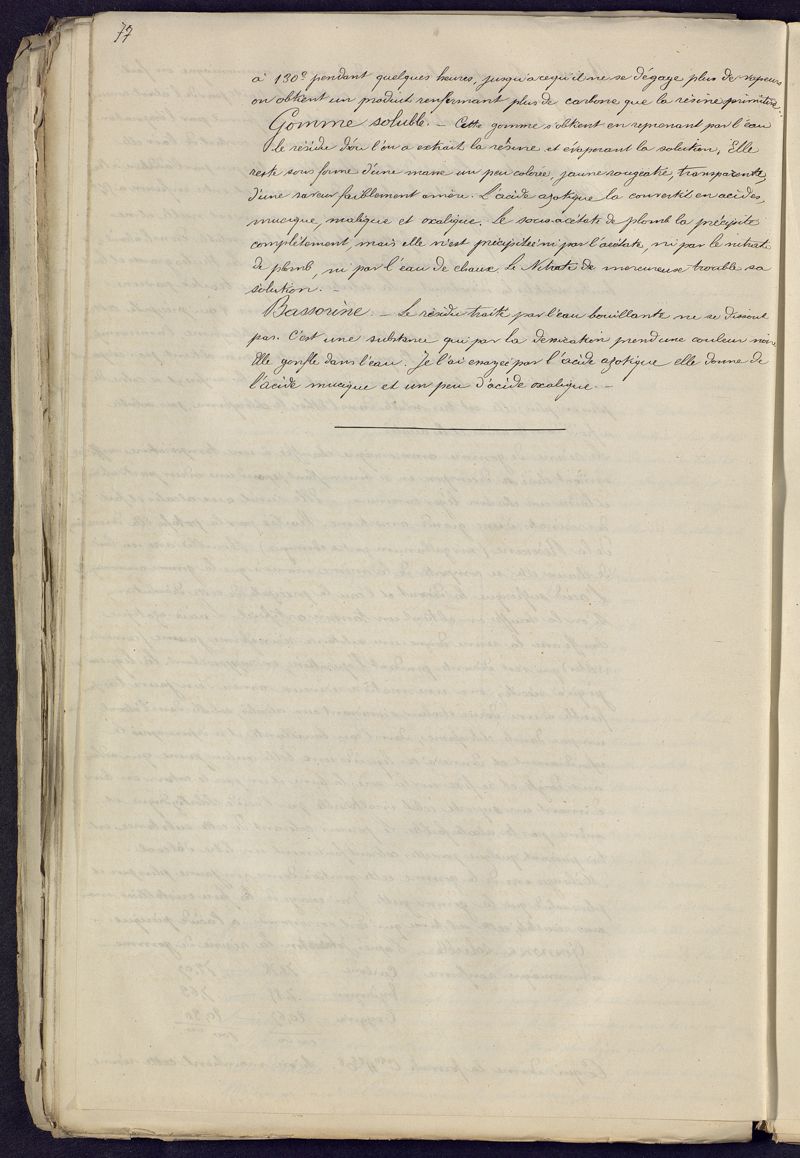 77
à 130° pendant quelques heures, jusqu'a cequ'il ne se dégage plus de vapeurs
on obtient un produit renfermant plus de carbone que la résine primitive.
Gomme soluble. — Cette gomme s'obtient en reprenant par l'eau
le résidu d'où l'on a extrait la résine et évaporant la solution. Elle
reste sous forme d'une masse un peu colorée, jaune rougeatre, transparente,
d'une saveur faiblement amère. L'acide azotique la convertit en acides,
mucique, malique et oxalique. Le sous-acétate de plomb la précipite
complétement, mais elle n'est précipitée ni par l'acétate, ni par le nitrate
de plomb, ni par l'eau de chaux. Le Nitrate de mercureuse trouble sa
solution. —
Bassorine. — Le résidu traité par l'eau bouillante ne se dissout
pas. C'est une substance qui par la dessication prend une couleur noire
Elle gonfle dans l'eau. Je l'ai essayée par l'acide azotique elle donne de
l'acide mucique et un peu d'acide oxalique. —